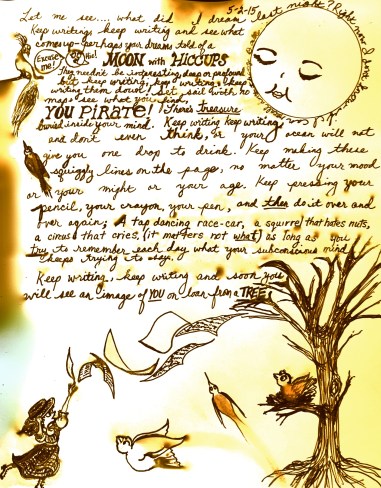 5-2-15
Let me see.... what did I dream last night? Right now I don't
Keep writing, keep writing and see what
comes up - perhaps your dreams told of a
Excuse me!
MOON with HICCUPS
They needn't be interesting, deep or profound
but keep writing, keep writing,
writing them down! Set sail with no
map & see what you find,
YOU PIRATE! There's treasure
buried inside your mind. Keep writing keep writing
and don't even think, or your ocean will not
give you one drop to drink. Keep making these
squiggly lines on the page, no matter your mood
or your might or your age. Keep pressing your
pencil, your crayon, your pen, and then do it over and
over again; A tap dancing race-car, a squirrel that hates nuts,
a cirus that cries, (it matters not what) as long as you
try to remember each day what your subconscious mind
keeps trying to say.
Keep writing, keep writing and soon you
will see an image of YOU on loan from a TREE!